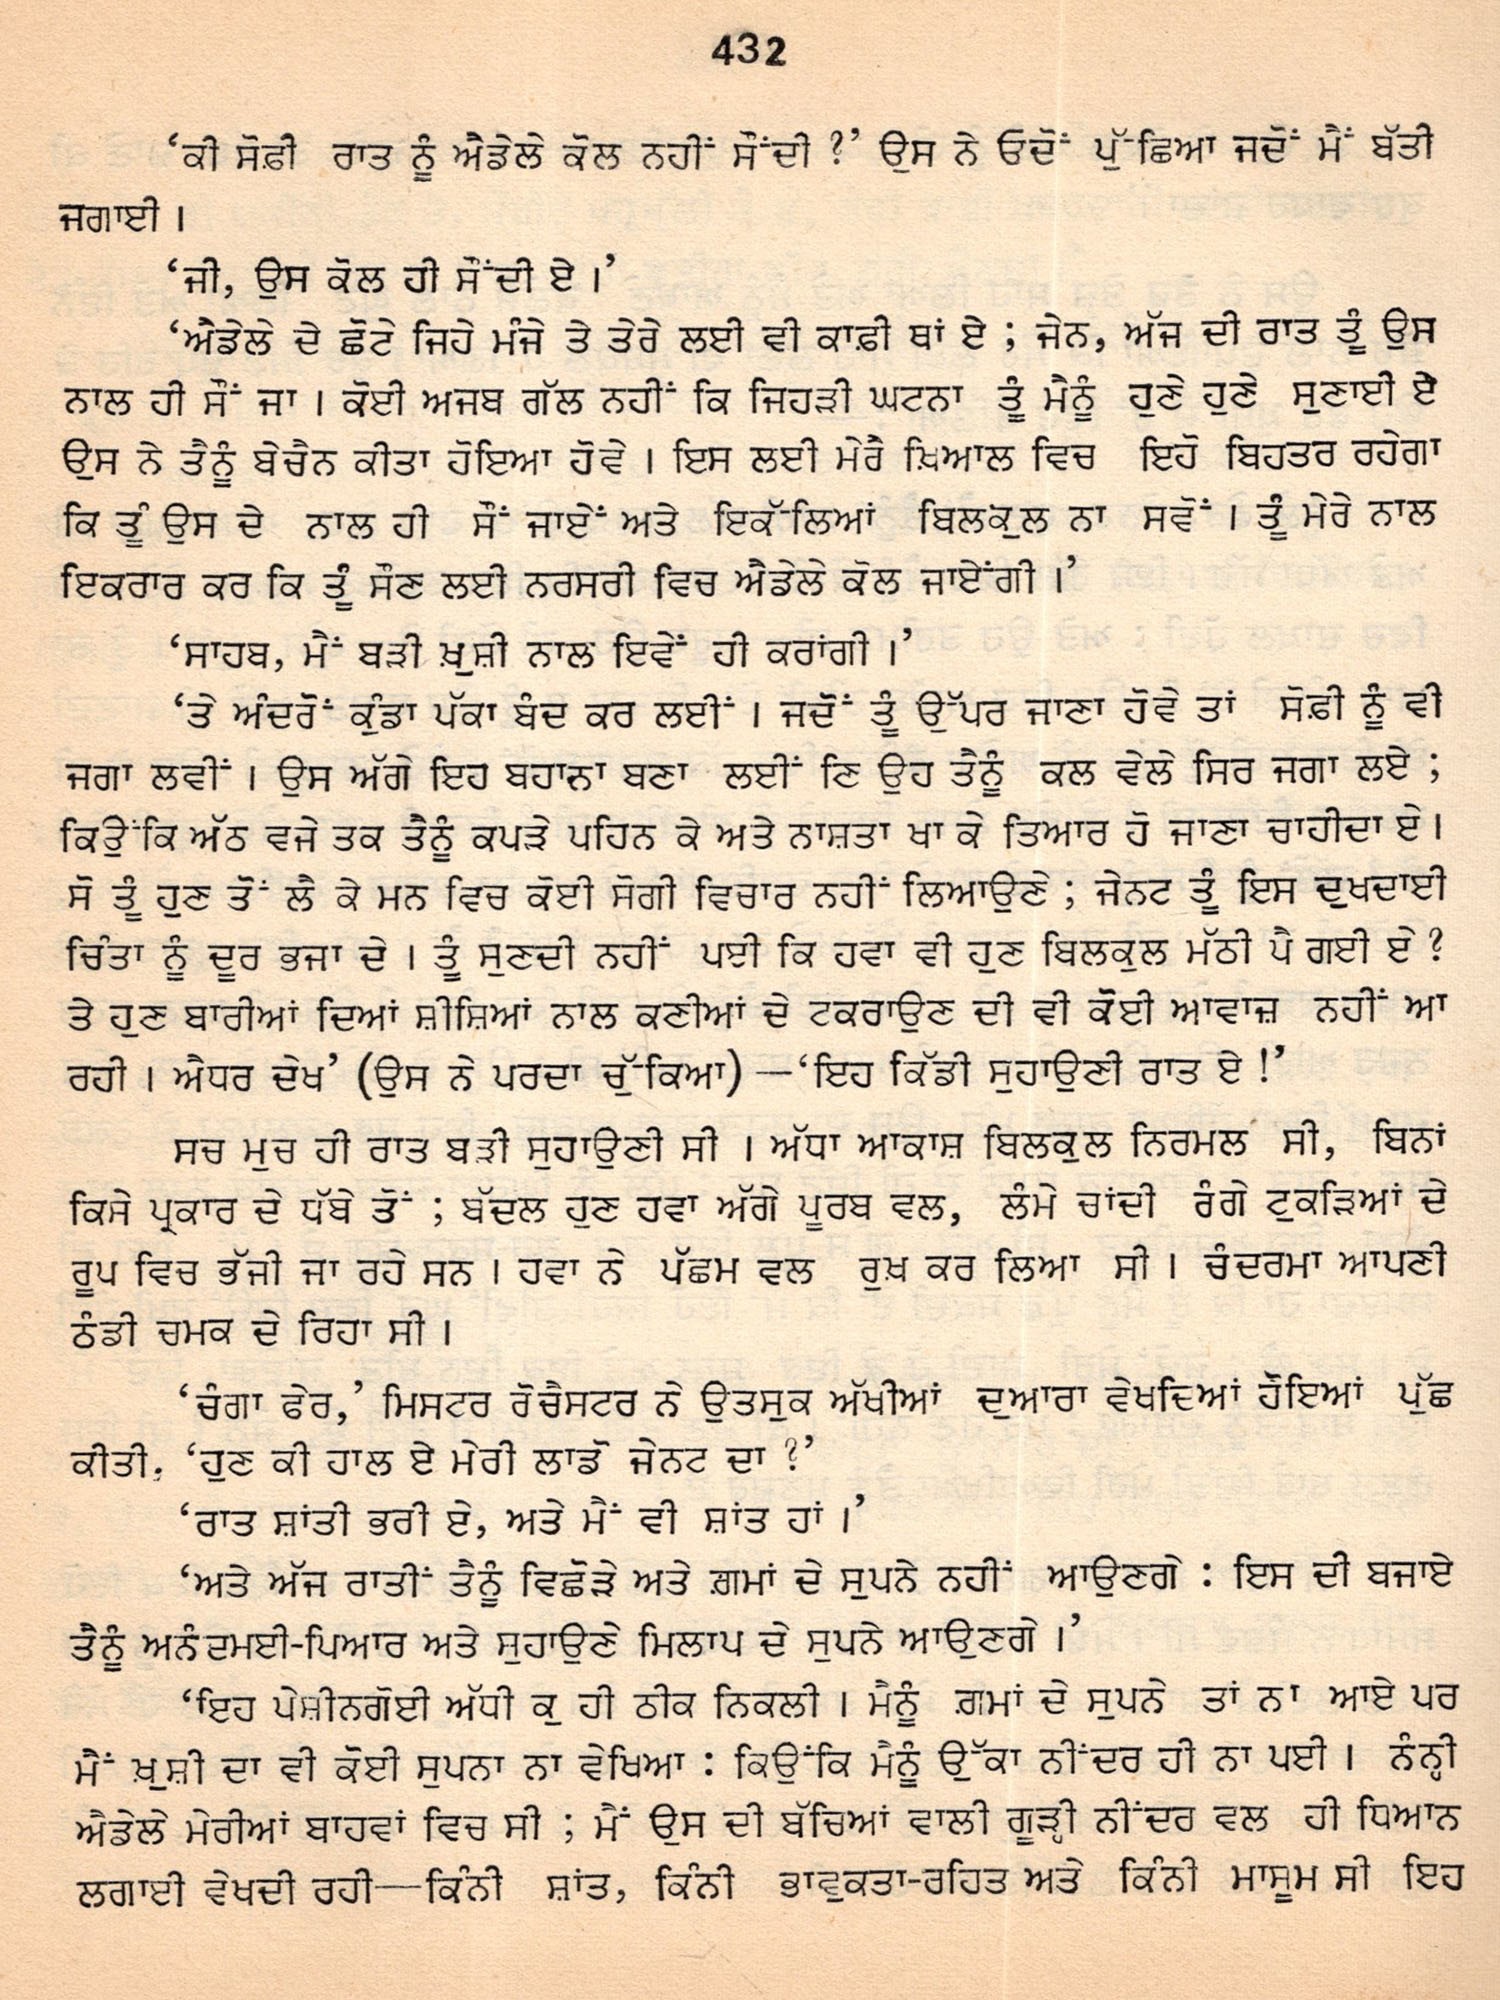 432
‘ਕੀ ਸੋਫ਼ੀ ਰਾਤ ਨੂੰ ਐਡੇਲੇ ਕੋਲ ਨਹੀਂ ਸੌਂਦੀ ?’ ਉਸ ਨੇ ਓਦੋਂ ਪੁੱਛਿਆ ਜਦੋਂ ਮੈਂ ਬੱਤੀ
ਜਗਾਈ ।
‘ਜੀ, ਉਸ ਕੋਲ ਹੀ ਸੌਂਦੀ ਏ ।’
‘ਐਡੇਲੇ ਦੇ ਛੋਟੇ ਜਿਹੇ ਮੰਜੇ ਤੇ ਤੇਰੇ ਲਈ ਵੀ ਕਾਫ਼ੀ ਥਾਂ ਏ ; ਜੇਨ, ਅੱਜ ਦੀ ਰਾਤ ਤੂੰ ਉਸ
ਨਾਲ ਹੀ ਸੌਂ ਜਾ । ਕੋਈ ਅਜਬ ਗੱਲ ਨਹੀਂ ਕਿ ਜਿਹੜੀ ਘਟਨਾ ਤੂੰ ਮੈਨੂੰ ਹੁਣੇ ਹੁਣੇ ਸੁਣਾਈ ਏ
ਉਸ ਨੇ ਤੈਨੂੰ ਬੇਚੈਨ ਕੀਤਾ ਹੋਇਆ ਹੋਵੇ । ਇਸ ਲਈ ਮੇਰੈ ਖ਼ਿਆਲ ਵਿਚ ਇਹੋ ਬਿਹਤਰ ਰਹੇਗਾ
ਕਿ ਤੂੰ ਉਸ ਦੇ ਨਾਲ ਹੀ ਸੌਂ ਜਾਏਂ ਅਤੇ ਇਕੱਲਿਆਂ ਬਿਲਕੁਲ ਨਾ ਸਵੇਂ । ਤੂੰ ਮੇਰੇ ਨਾਲ
ਇਕਰਾਰ ਕਰ ਕਿ ਤੂੰ ਸੌਣ ਲਈ ਨਰਸਰੀ ਵਿਚ ਐਡੇਲੇ ਕੋਲ ਜਾਏਂਗੀ ।’
‘ਸਾਹਬ, ਮੈਂ ਬੜੀ ਖ਼ੁਸ਼ੀ ਨਾਲ ਇਵੇਂ ਹੀ ਕਰਾਂਗੀ ।’
‘ਤੇ ਅੰਦਰੋਂ ਕੁੰਡਾ ਪੱਕਾ ਬੰਦ ਕਰ ਲਈਂ । ਜਦੋਂ ਤੂੰ ਉੱਪਰ ਜਾਣਾ ਹੋਵੇ ਤਾਂ ਸੋਫ਼ੀ ਨੂੰ ਵੀ
ਜਗਾ ਲਵੀਂ । ਉਸ ਅੱਗੇ ਇਹ ਬਹਾਨਾ ਬਣਾ ਲਈਂ ਣਿ ਉਹ ਤੈਨੂੰ ਕਲ ਵੇਲੇ ਸਿਰ ਜਗਾ ਲਏ ;
ਕਿਉਂਕਿ ਅੱਠ ਵਜੇ ਤਕ ਤੈਨੂੰ ਕਪੜੇ ਪਹਿਨ ਕੇ ਅਤੇ ਨਾਸ਼ਤਾ ਖਾ ਕੇ ਤਿਆਰ ਹੋ ਜਾਣਾ ਚਾਹੀਦਾ ਏ ।
ਸੋ ਤੂੰ ਹੁਣ ਤੋਂ ਲੈ ਕੇ ਮਨ ਵਿਚ ਕੋਈ ਸੋਗੀ ਵਿਚਾਰ ਨਹੀਂ ਲਿਆਉਣੇ ; ਜੇਨਟ ਤੂੰ ਇਸ ਦੁਖਦਾਈ
ਚਿੰਤਾ ਨੂੰ ਦੂਰ ਭਜਾ ਦੇ । ਤੂੰ ਸੁਣਦੀ ਨਹੀਂ ਪਈ ਕਿ ਹਵਾ ਵੀ ਹੁਣ ਬਿਲਕੁਲ ਮੱਠੀ ਪੈ ਗਈ ਏ ?
ਤੇ ਹੁਣ ਬਾਰੀਆਂ ਦਿਆਂ ਸ਼ੀਸ਼ਿਆਂ ਨਾਲ ਕਣੀਆਂ ਦੇ ਟਕਰਾਉਣ ਦੀ ਵੀ ਕੋਈ ਆਵਾਜ਼ ਨਹੀਂ ਆ
ਰਹੀ । ਐਧਰ ਦੇਖ’ (ਉਸ ਨੇ ਪਰਦਾ ਚੁੱਕਿਆ) —‘ਇਹ ਕਿੱਡੀ ਸੁਹਾਉਣੀ ਰਾਤ ਏ !’
ਸਚ ਮੁਚ ਹੀ ਰਾਤ ਬੜੀ ਸੁਹਾਉਣੀ ਸੀ । ਅੱਧਾ ਆਕਾਸ਼ ਬਿਲਕੁਲ ਨਿਰਮਲ ਸੀ, ਬਿਨਾਂ
ਕਿਸੇ ਪ੍ਰਕਾਰ ਦੇ ਧੱਬੇ ਤੋਂ ; ਬੱਦਲ ਹੁਣ ਹਵਾ ਅੱਗੇ ਪੂਰਬ ਵਲ, ਲੰਮੇ ਚਾਂਦੀ ਰੰਗੇ ਟੁਕੜਿਆਂ ਦੇ
ਰੂਪ ਵਿਚ ਭੱਜੀ ਜਾ ਰਹੇ ਸਨ । ਹਵਾ ਨੇ ਪੱਛਮ ਵਲ ਰੁਖ਼ ਕਰ ਲਿਆ ਸੀ । ਚੰਦਰਮਾ ਆਪਣੀ
ਠੰਡੀ ਚਮਕ ਦੇ ਰਿਹਾ ਸੀ ।
‘ਚੰਗਾ ਫੇਰ,’ ਮਿਸਟਰ ਰੋਚੈਸਟਰ ਨੇ ਉਤਸੁਕ ਅੱਖੀਆਂ ਦੁਆਰਾ ਵੇਖਦਿਆਂ ਹੋਇਆਂ ਪੁੱਛ
ਕੀਤੀ, ‘ਹੁਣ ਕੀ ਹਾਲ ਏ ਮੇਰੀ ਲਾਡੋ ਜੇਨਟ ਦਾ ?’
‘ਰਾਤ ਸ਼ਾਂਤੀ ਭਰੀ ਏ, ਅਤੇ ਮੈਂ ਵੀ ਸ਼ਾਂਤ ਹਾਂ ।’
‘ਅਤੇ ਅੱਜ ਰਾਤੀਂ ਤੈਨੂੰ ਵਿਛੋੜੇ ਅਤੇ ਗ਼ਮਾਂ ਦੇ ਸੁਪਨੇ ਨਹੀਂ ਆਉਣਗੇ : ਇਸ ਦੀ ਬਜਾਏ
ਤੈਨੂੰ ਅਨੰਦਮਈ-ਪਿਆਰ ਅਤੇ ਸੁਹਾਉਣੇ ਮਿਲਾਪ ਦੇ ਸੁਪਨੇ ਆਉਣਗੇ ।’
‘ਇਹ ਪੇਸ਼ੀਨਗੋਈ ਅੱਧੀ ਕੁ ਹੀ ਠੀਕ ਨਿਕਲੀ । ਮੈਨੂੰ ਗ਼ਮਾਂ ਦੇ ਸੁਪਨੇ ਤਾਂ ਨਾ ਆਏ ਪਰ
ਮੈਂ ਖ਼ੁਸ਼ੀ ਦਾ ਵੀ ਕੋਈ ਸੁਪਨਾ ਨਾ ਵੇਖਿਆ : ਕਿਉਂਕਿ ਮੈਨੂੰ ਉੱਕਾ ਨੀਂਦਰ ਹੀ ਨਾ ਪਈ । ਨੰਨ੍ਹੀ
ਐਡੇਲੇ ਮੇਰੀਆਂ ਬਾਹਵਾਂ ਵਿਚ ਸੀ ; ਮੈਂ ਉਸ ਦੀ ਬੱਚਿਆਂ ਵਾਲੀ ਗੂੜ੍ਹੀ ਨੀਂਦਰ ਵਲ ਹੀ ਧਿਆਨ
ਲਗਾਈ ਵੇਖਦੀ ਰਹੀ—ਕਿੰਨੀ ਸ਼ਾਂਤ, ਕਿੰਨੀ ਭਾਵੁਕਤਾ-ਰਹਿਤ ਅਤੇ ਕਿੰਨੀ ਮਾਸੂਮ ਸੀ ਇਹ